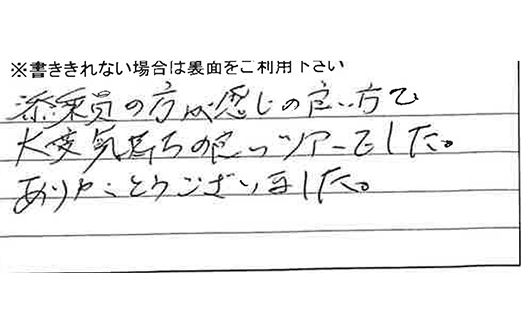 ※書ききれない場合は裏面をご利用下さい
添乗員の方が感じの良い方で
大変気持ちの良いツアーでした。
ありがとうございました。